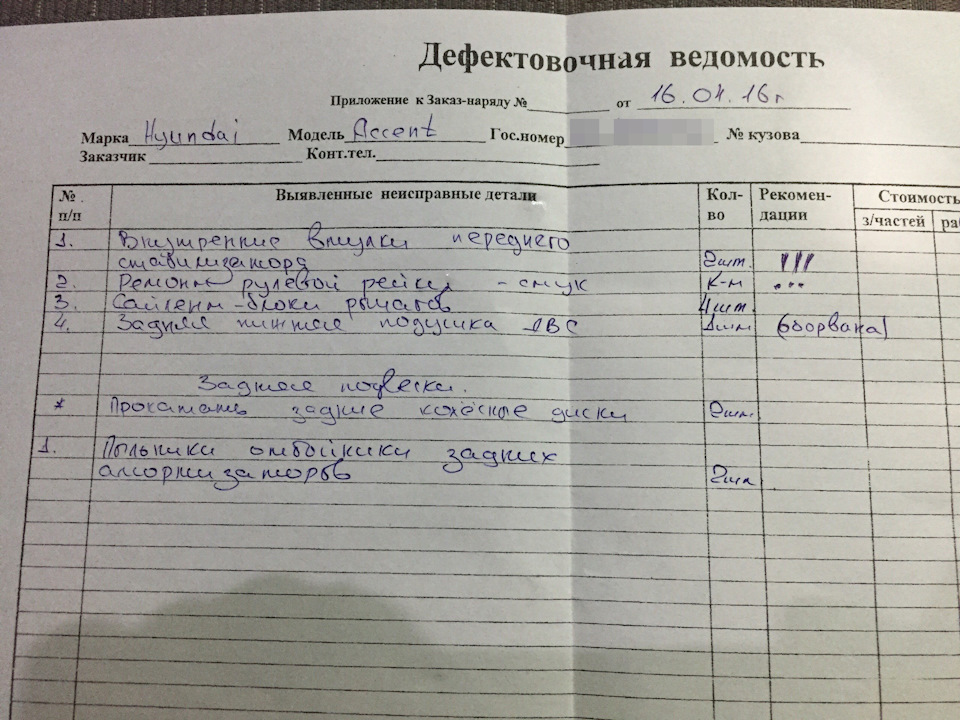 Дефектовочная ведомость
Приложение к Заказ-наряду № от 16.04.16г
Марка Hyundai Модель Accent Гос.номер № кузова
Заказчик Конт.тел.
№ п/п Выявленные неисправные детали Кол-во Рекомен-дации Стоимость
з/частей ра
1. Внутренние втулки переднего
стабилизатора 2шт. !!!
2. Ремонт рулевой рейки - стук к-т ...
3. Сайлент-блоки рычагов 4шт.
4. Задняя нижняя подушка ДВС 1шт (оборвана)
Задняя подвеска.
* Прокатать задние колёсные диски 2шт.
1. Пыльники отбойники задних
амортизаторов 2шт